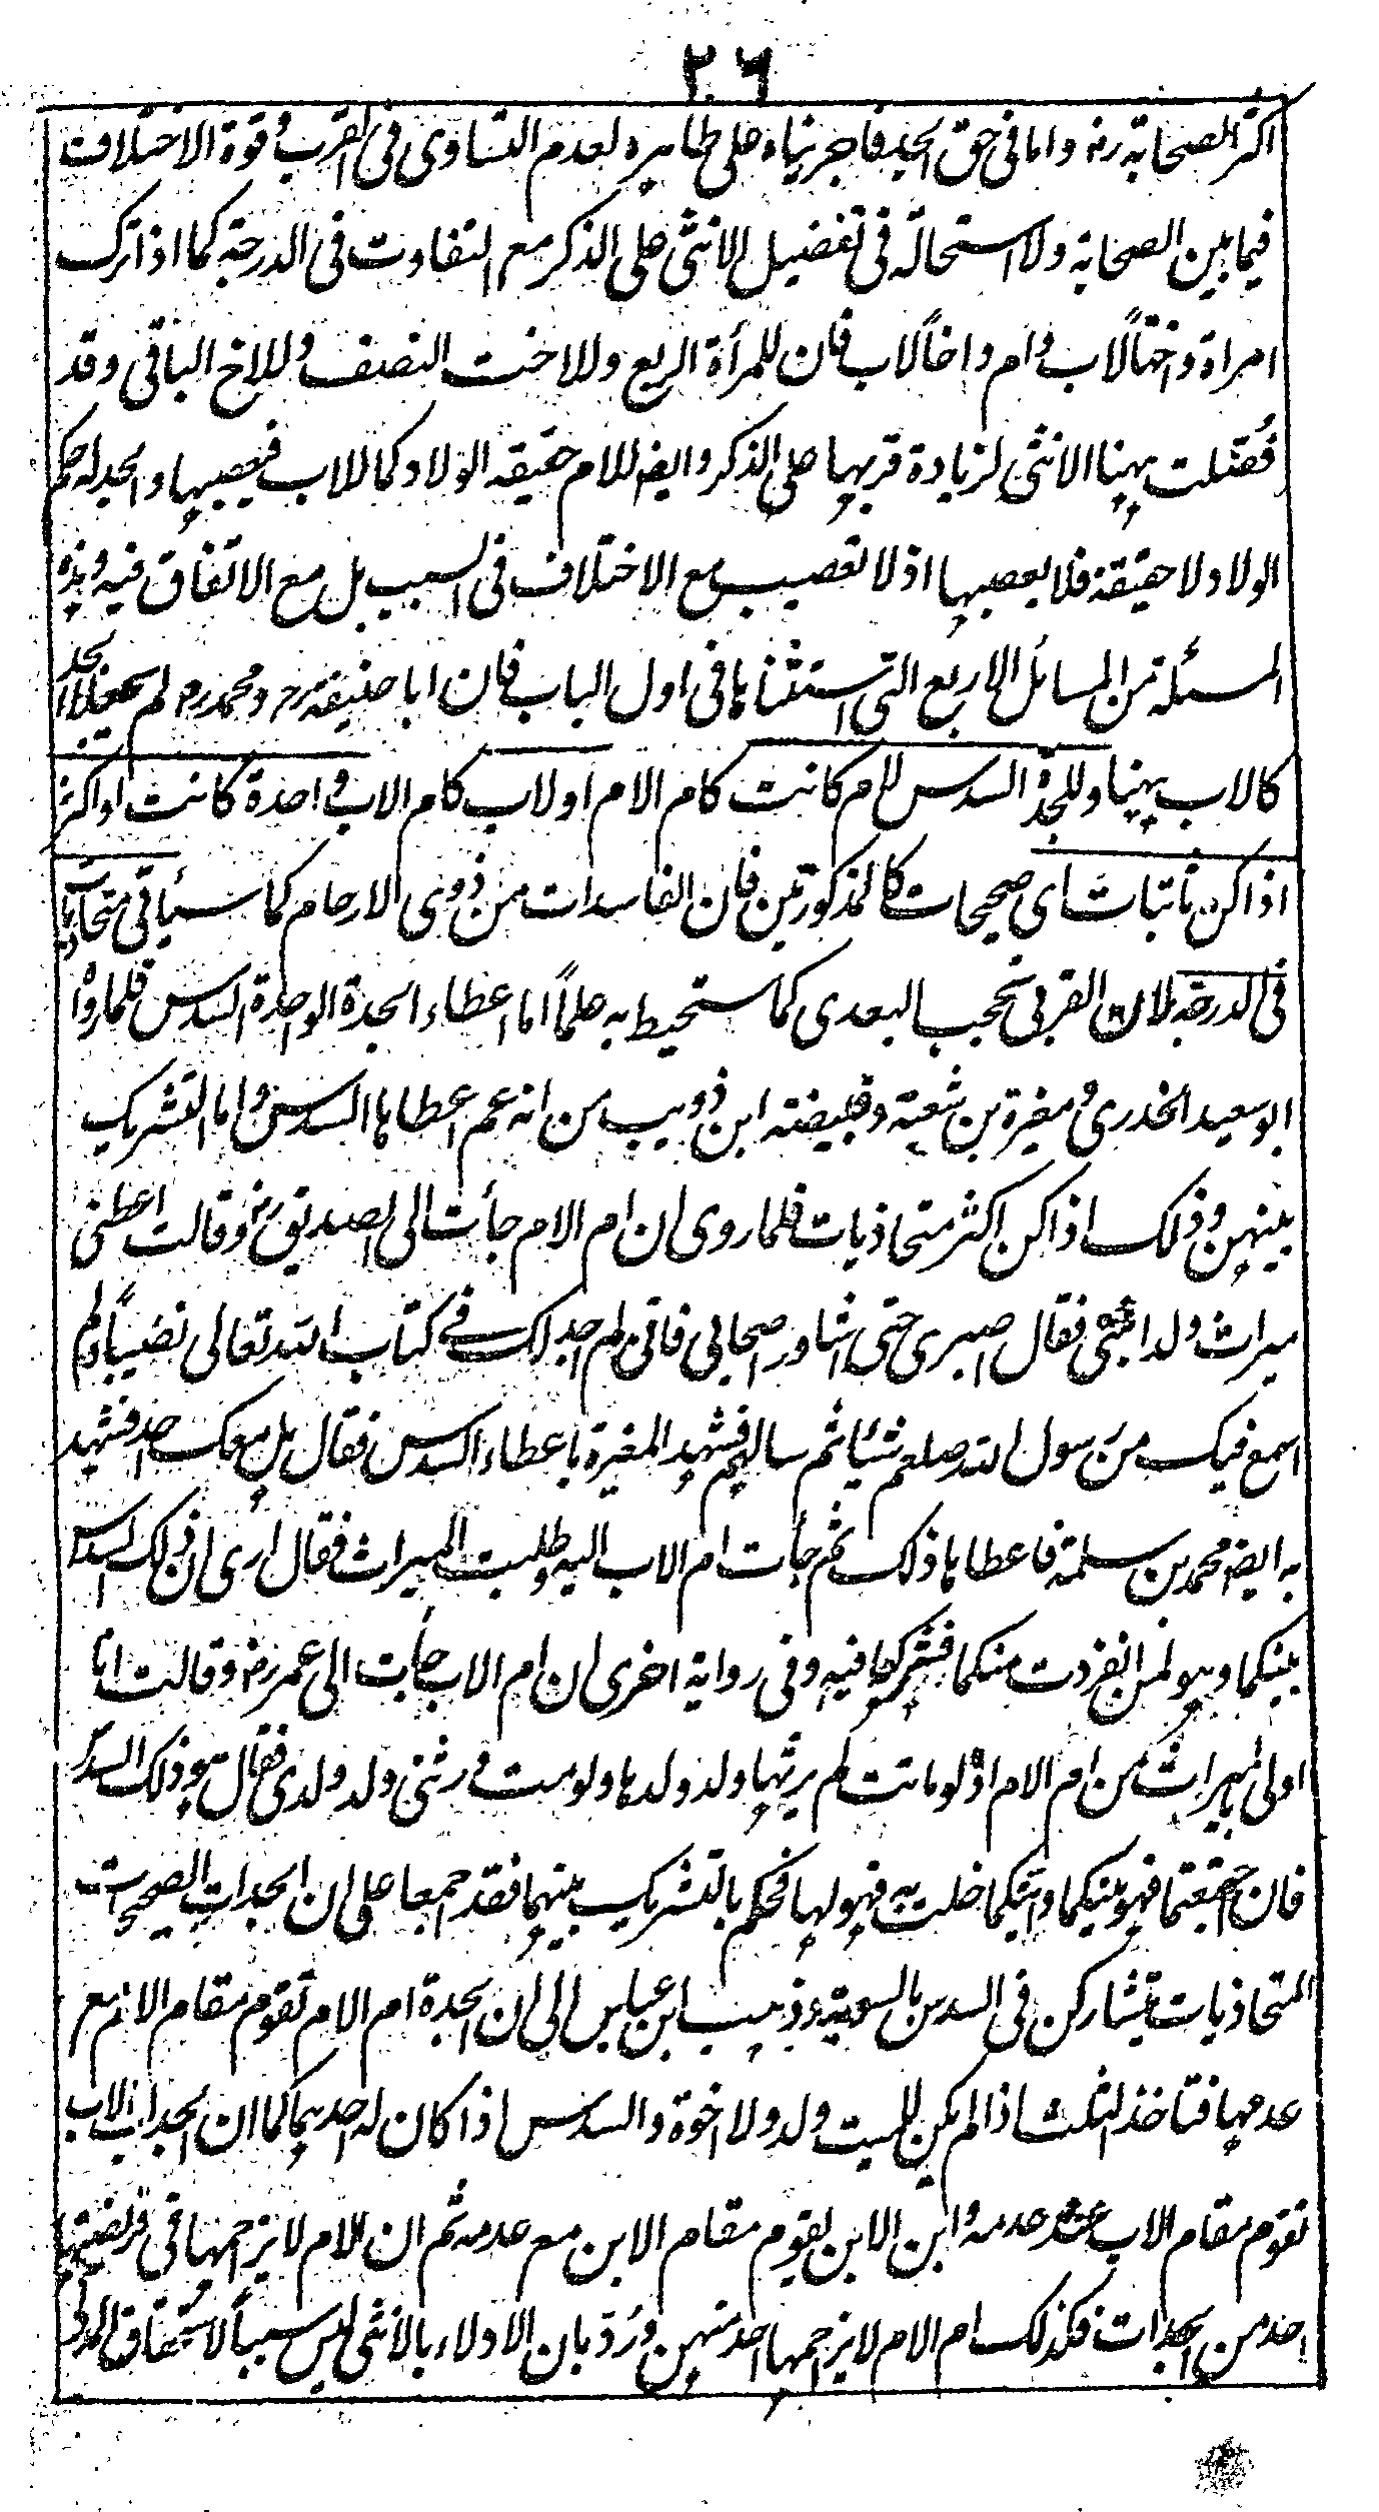 ٢٦
اكثر الصحابة رضہ واما فى حق الجد فاجريناه على ظاهره لعدم التساوى فى القرب وقوة الاختلاف
فيما بين الصحابة ولا استحالة فى تفضيل الانثى على الذكر مع التفاوت فى الدرجة كما اذا ترك
امراة واختًا لاب وام واخًا لاب فان للمرأة الربع وللاخت النصف وللاخ الباقى وقد
فُضّلت ههنا الانثى لزيادة قربها على الذكر وايضہ للام حقيقة الولاد كما للاب فيعصبها والجد له حكم
الولاد لا حقيقة فلا يعصبها اذ لا تعصيب مع الاختلاف فى السبب بل مع الاتفاق فيه وهذه
المسئلة من المسائل الاربع التى استثناها فى اول الباب فان ابا حنيفة رح ومحمد رح لم يجعلا الجد
كالاب ههنا وللجدة السدس لام كانت كام الام او لاب كام الاب واحدة كانت او اكثر
اذا كن ثابتات اى صحيحات كالمذكورتين فان الفاسدات من ذوى الارحام كما سيأتى متحاذيات
فى الدرجة لان القربى تحجب البعدى كما ستحيط به علمًا اما اعطاء الجدة الواحدة السدس فلما رواه
ابو سعيد الخدرى ومغيرة بن شعبة وقبيصة ابن ذويب من انه عم اعطاها السدس واما التشريك
بينهن وذلك اذا كن اكثر متحاذيات فلما روى ان ام الام جأت الى الصديق رضہ وقالت اعطنى
ميراث ولد ابنتى فقال اصبرى حتى اشاور اصحابى فانى لم اجد لك فے كتاب الله تعالى نصيبًا ولم
اسمع فيك من رسول الله صلعم شيئا ثم سالهم فشهد المغيرة باعطاء السدس فقال هل معك احد فشهد
به ايضہ محمد بن سلمة فاعطاها ذلك ثم جأت ام الاب اليه وطلبت الميراث فقال أرى ان ذلك السدس
بينكما وهو لمن انفردت منكما فشركهما فيه وفى رواية اخرى ان ام الاب جأت الى عمر رضہ وقالت انا
اولى بالميراث من ام الام اذ لو ماتت لم يرثها ولد ولدها ولو مت ورثنى ولد ولدى فقال هو ذلك السدس
فان اجتمعتما فهو بينكما وايتكما خلت به فهو لها فحكم بالتشريك بينهما فقد اجمعا على ان الجدات الصحيحات
المتحاذيات يتشاركن فى السدس بالسوية وذهب ابن عباس الى ان الجدة ام الام تقوم مقام الام مع
عدمها فتاخذ الثلث اذا لم يكن للميت ولد ولا اخوة والسدس اذا كان له احدهما كما ان الجد اب الاب
تقوم مقام الاب عند عدمه وابن الابن يقوم مقام الابن مع عدمه ثم ان الام لا يزاحمها فى فريضتها
احد من الجدات فكذلك ام الام لا يزاحمها احد منهن ورُدّ بان الاولاء بالانثى ليس سببًا لاستحقاق المدلى